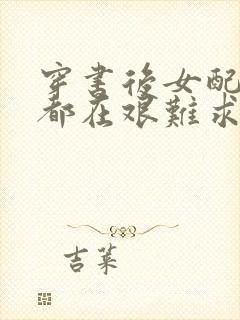 穿書後女配
都在艱難求
吉菜